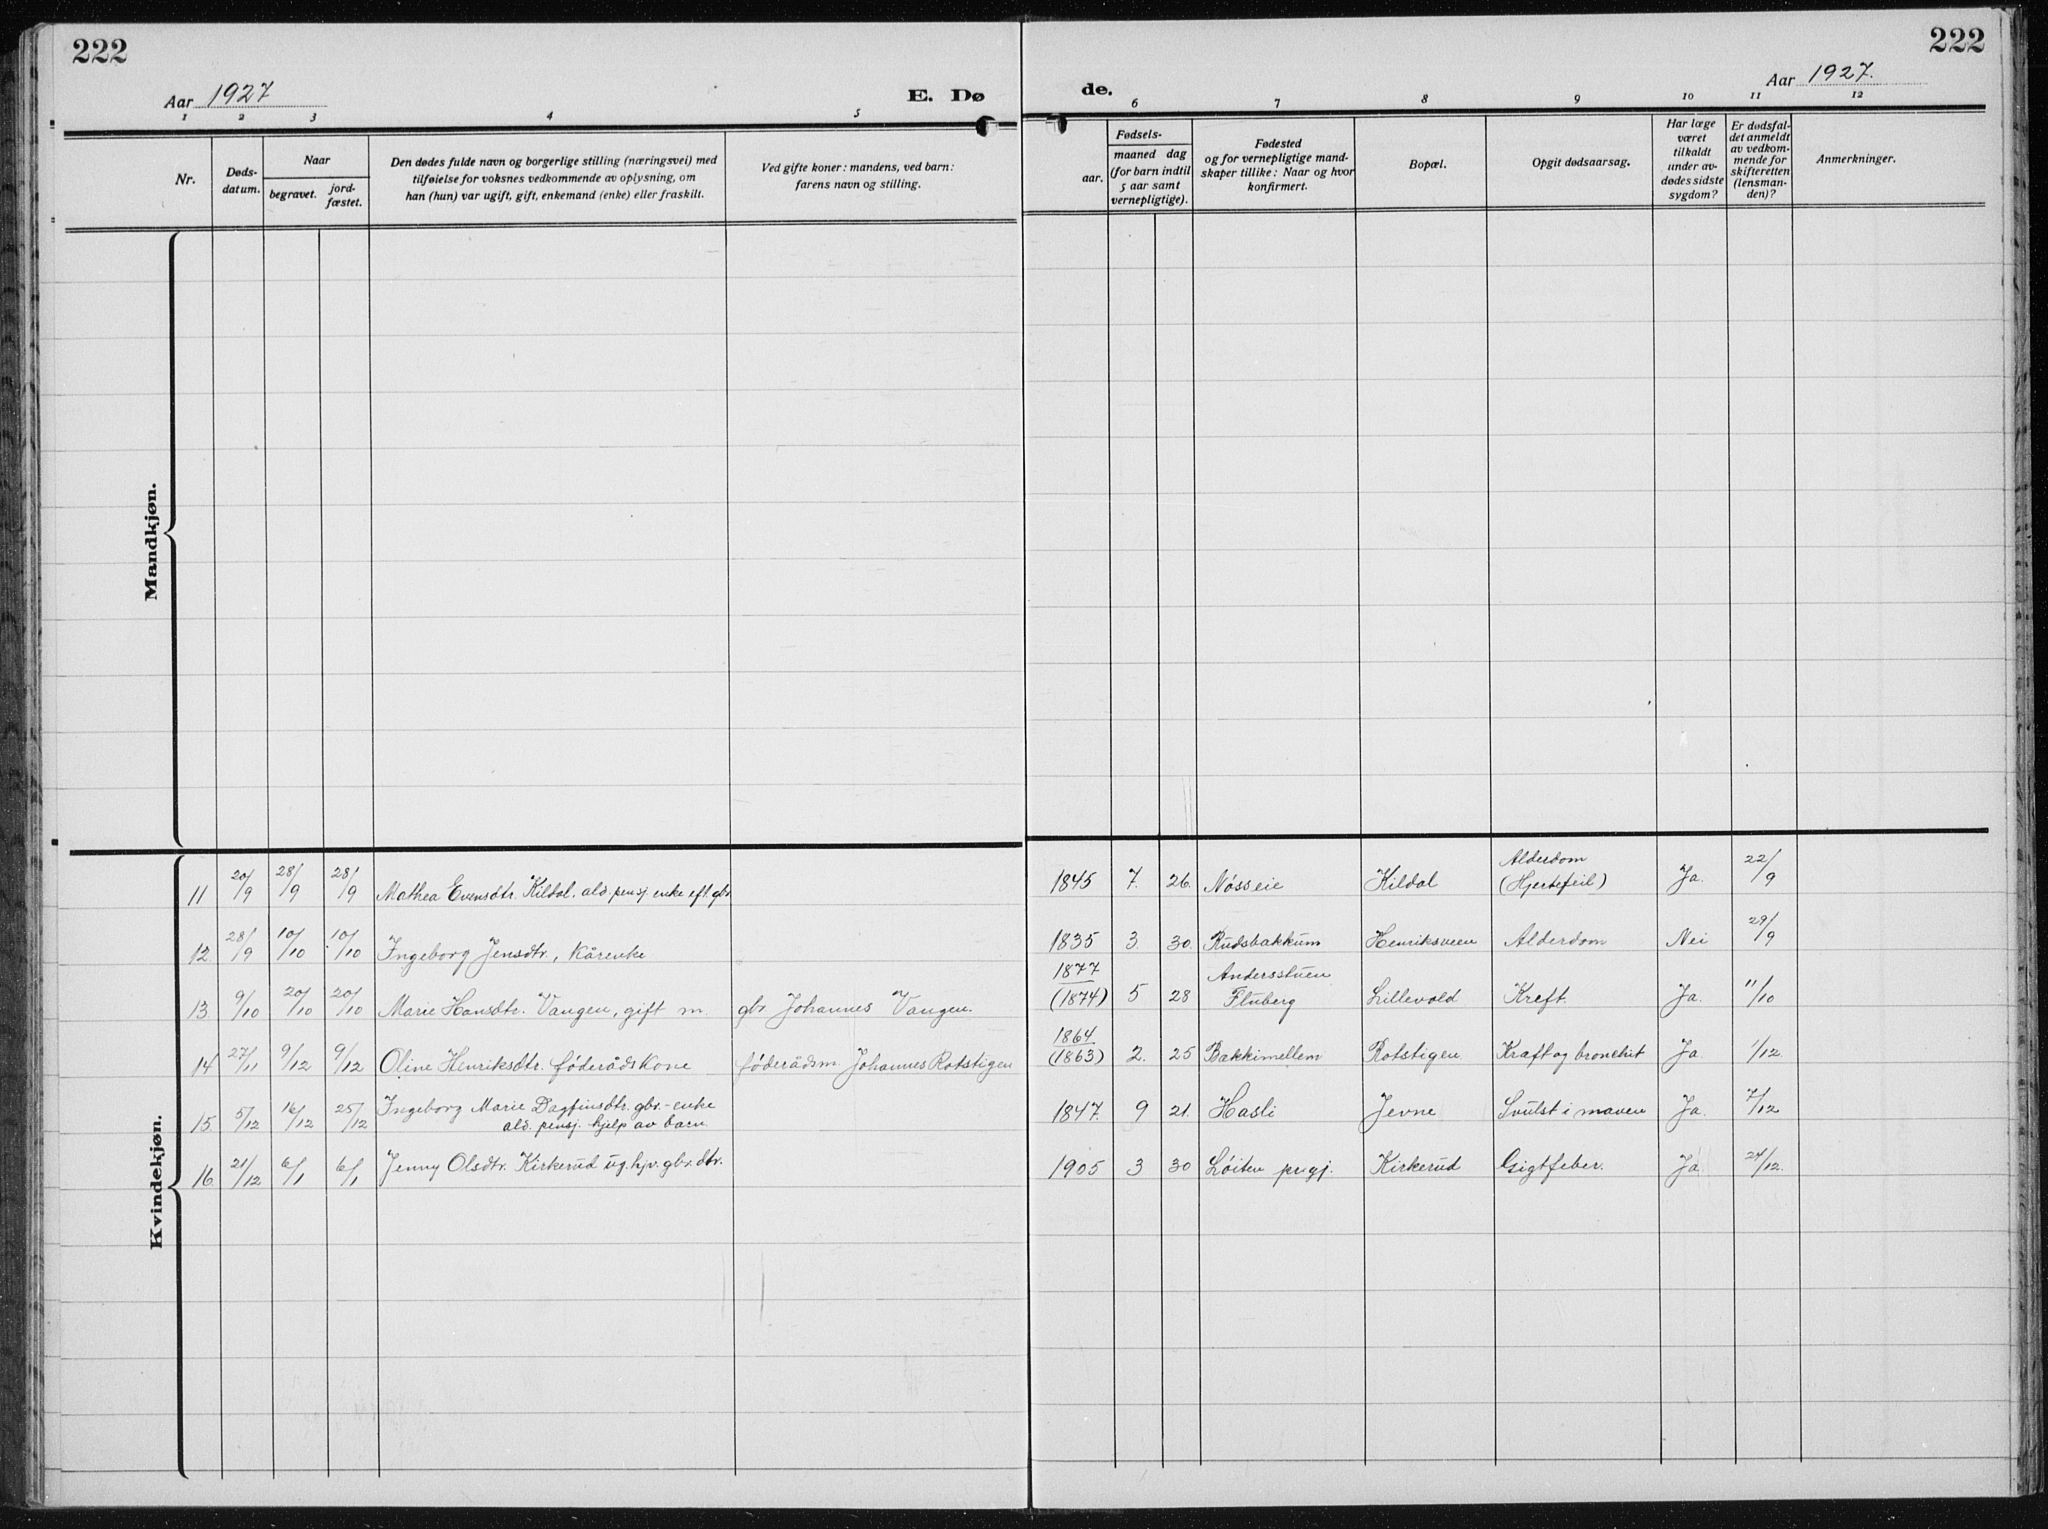 222
222
Aar 1927
E. Dø
de.
Aar 1927.
1 2 3 4 5 6 7 8 9 10 11 12
Nr.
Døds-
datum.
Naar
begravet.
jord-
fæstet.
Den dødes fulde navn og borgerlige stilling (næringsvei) med
tilføielse for voksnes vedkommende av oplysning, om
han (hun) var ugift, gift, enkemand (enke) eller fraskilt.
Ved gifte koner: mandens, ved barn:
farens navn og stilling.
aar.
Fødsels-
maaned dag
(for barn indtil
5 aar samt
vernepligtige).
Fødested
og for vernepligtige mand-
skaper tillike: Naar og hvor
konfirmert.
Bopæl.
Opgit dødsaarsag.
Har læge
været
tilkaldt
under av-
dødes sidste
sygdom?
Er dødsfal-
det anmeldt
av vedkom-
mende for
skifteretten
(lensman-
den)?
Anmerkninger.
Mandkjøn.
Kvindekjøn.
11 20/9 28/9 28/9 Mathea Evensdtr. Kildal. ald pensj enke eft gbr 1845 7. 26. Nøsseie Kildal Alderdom (Hjertefeil) Ja. 22/9
12. 28/9 10/10 10/10 Ingeborg Jensdtr., Kårenke 1835 3. 30. Rudsbakkum Henriksveen Alderdom Nei 29/9
13. 9/10 20/10 20/10 Marie Hansdtr. Vangen, gift m. gbr Johannes Vangen. 1877 (1874) 5 28 Andersstuen Fluberg Lillevold Kreft. Ja. 11/10
14 27/11 9/12 9/12 Oline Henriksdtr. føderådskone føderådsm. Johannes Rotstigen 1864 (1863) 2. 25 Bakkimellem Rotstigen Kraft og bronchit Ja. 1/12.
15. 5/12 16/12 25/12 Ingeborg Marie Dagfinsdtr. gbr.-enke
ald. pensj. hjelp av barn. 1847. 9 21. Hasli Jevne Svulst i maven Ja. 7/12
16. 21/12 6/1 6/1 Jenny Olsdtr. Kirkerud ug. hjv. gbr. dtr. 1905 3 30 Løiten prgj. Kirkerud Gigtfeber. Ja 24/12.